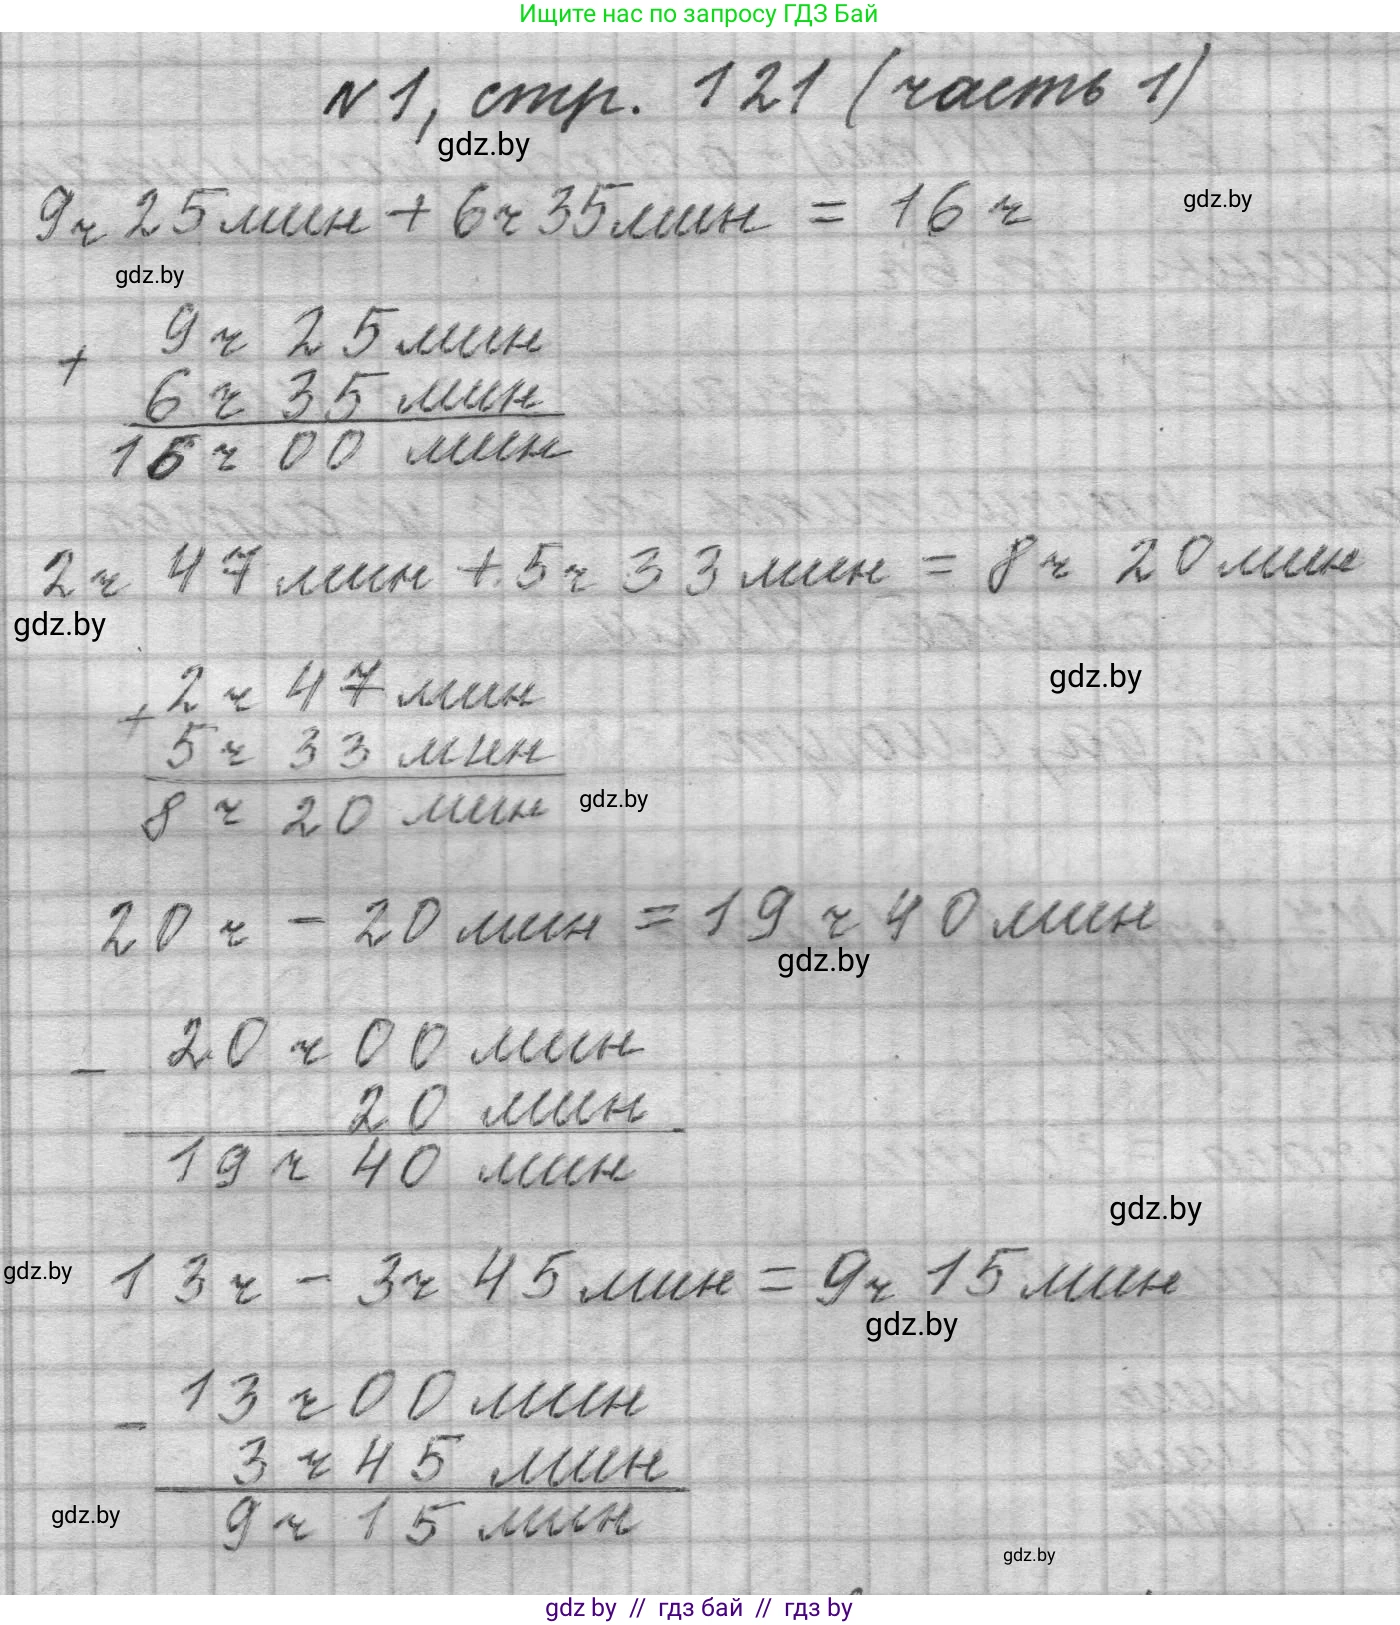 Ищите нас по запросу ГДЗ Бай
№1, стр. 121 (часть 1)
gdz.by
9ч 25мин + 6ч 35мин = 16ч
gdz.by
gdz.by
9ч 25мин
+
6ч 35мин
16ч 00 мин
2ч 47мин + 5ч 33мин = 8ч 20мин
gdz.by
gdz.by
2ч 47мин
+
5ч 33мин
gdz.by
8ч 20мин
20ч - 20мин = 19ч 40мин
gdz.by
20ч 00мин
-
20 мин
19ч 40 мин
gdz.by
gdz.by
13ч - 3ч 45мин = 9ч 15мин
gdz.by
13ч 00мин
-
3ч 45 мин
gdz.by
9ч 15мин
gdz.by
gdz by // гдз бай // гдз by